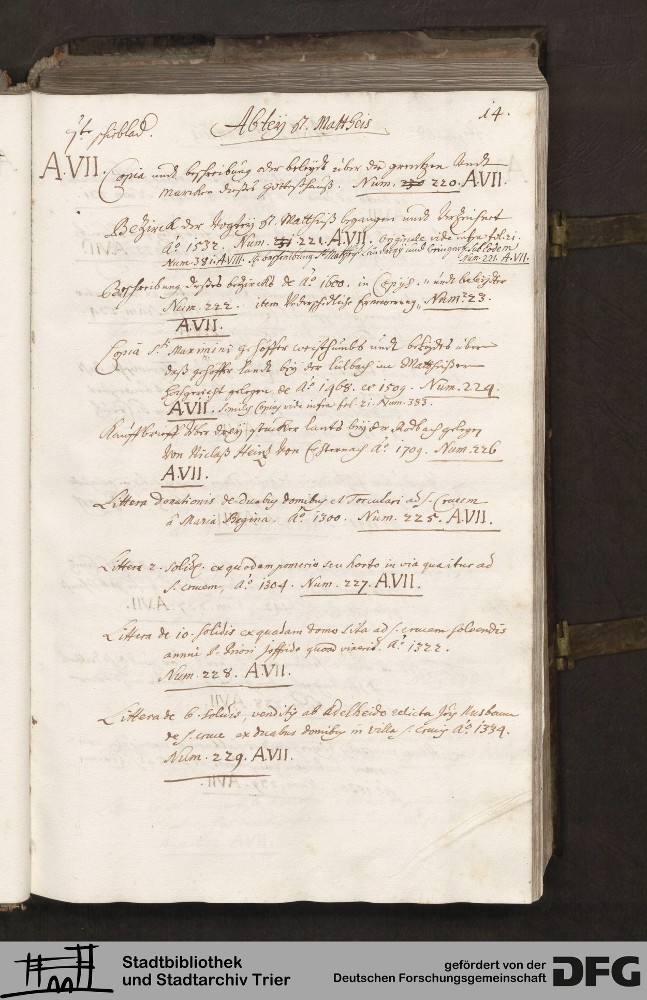 14.
7te schieblad. Abteÿ St. Mattheis
A.VII. Copia undt beschreibung oder beleydt über die grentzen undt
Marcken dießes Gotteshauß. Num. 220. A.VII.
Bezirck der Vogteÿ St. Mattheiß begangen undt
Aº 1532. Num. 221. A.VII. originale vide infra fol: 21.
Num. 38 A.VIII.
Num. 221. A.VII.
Beschreibung dießes bezircks de Aº 1600. in undt beleydter
Num. 222. item Num. 23.
A.VII.
Copia Sti Maximini gehöffer weisthumbs undt beleydts über
daß gehöffer landt beÿ der in Mattheißer
hochgericht gelegen de Aº 1468. et 1509. Num. 224.
A.VII. Similis Copia vide infra fol. 21. Num. 383.
Kauffbrieff über dreÿ stucker lants beÿ der gelegen
von Niclaß Heintz von Echternach Aº 1709. Num. 226
A.VII.
Littera donationis de duabus domibus et Torculari ad S. Crucem
à Maria Regina. Aº 1300. Num. 225. A.VII.
Littera 2. solid. ex quodam pomerio seu horto in via qua itur ad
S. crucem, Aº 1304. Num. 227. A.VII.
Littera de 10. solidis ex quadam domo sita ad S. crucem solvendis
annui D. Priori Joffrido quoad vixerit Aº 1322.
Num. 228. A.VII.
Littera de 6. solidis, venditis ab Adelheide relicta
de S. cruce ex duabus domibus in villa S. Crucis Aº 1334.
Num. 229. A.VII.
Stadtbibliothek
und Stadtarchiv Trier
gefördert von der
Deutschen Forschungsgemeinschaft
DFG